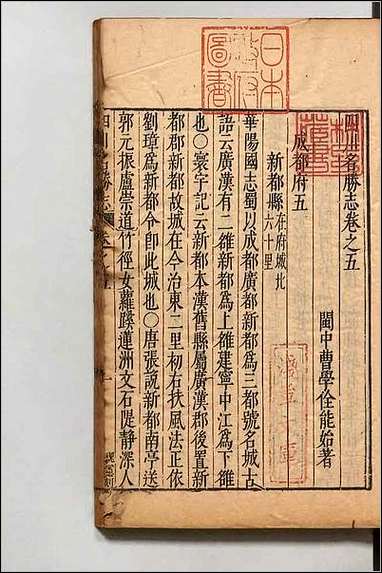 四川名勝志卷之五
閩中曹學佺能始著
成都府五
新都縣在府城北六十里
華陽國志蜀以成都廣都新都為三都號名城古
語云廣漢有二雒新都為上雒建寧中江為下雒
也〇寰宇記云新都本漢舊縣屬廣漢郡後置新
都郡新都故城在今治東二里扐右扶風法正依
劉璋為新都令卽此城也〇唐張說新都南亭送
郭元振盧崇道竹徑女蘿蹊蓮洲文石隄靜深人
日本政府圖書